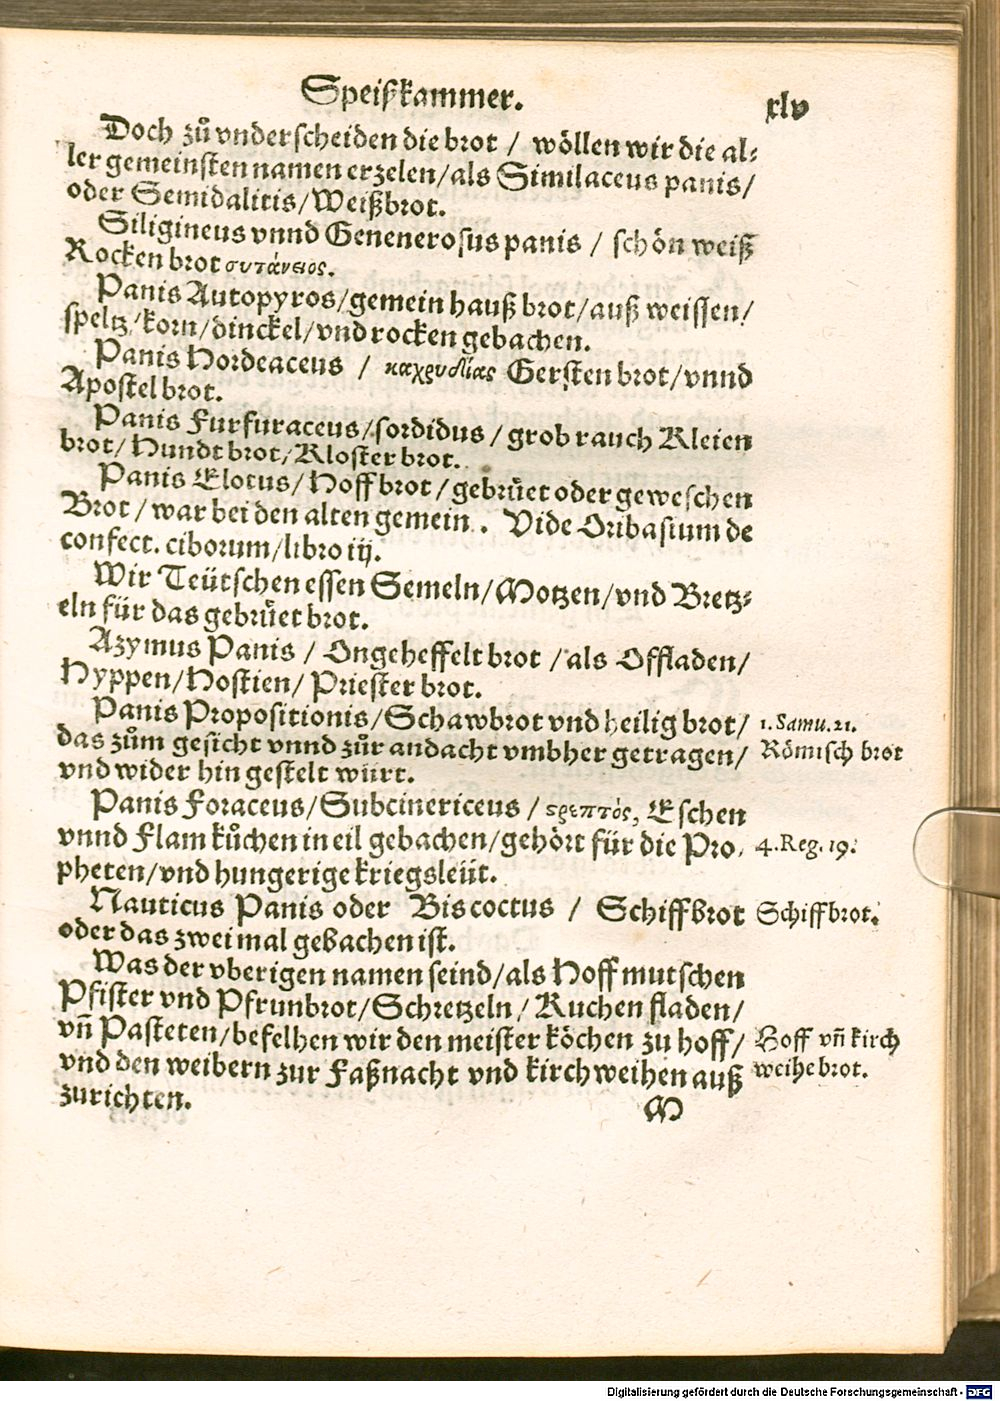 Speißkammer.
xlv
Doch zů vnderscheiden die brot / wöllen wir die al⸗
ler gemeinsten namen erzelen/als Similaceus panis/
oder Semidalitis/Weißbrot.
Siligineus vnnd Genenerosus panis / schön weiß
Rocken brot συτάνειος.
Panis Autopyros/gemein hauß brot/auß weissen/
speltz/korn/dinckel/vnd rocken gebachen.
Panis Hordeaceus / καχρυδίας Gersten brot/vnnd
Apostel brot.
Panis Furfuraceus/sordidus/grob rauch Kleien
brot/Hundt brot/Kloster brot.
Panis Elotus/Hoff brot/gebrüet oder geweschen
Brot/war bei den alten gemein. Vide Oribasium de
confect. ciborum/libro iij.
Wir Teütschen essen Semeln/Motzen/vnd Bretz⸗
eln für das gebrüet brot.
Azymus Panis / Ongeheffelt brot /als Offladen/
Hyppen/Hostien/Priester brot.
Panis Propositionis/Schawbrot vnd heilig brot/
1. Samu. 21.
das zům gesicht vnnd zůr andacht vmbher getragen/
Römisch brot
vnd wider hin gestelt würt.
Panis Foraceus/Subcinericeus / ςρεπτὸς, Eschen
vnnd Flam kůchen in eil gebachen/gehört für die Pro⸗
4. Reg. 19.
pheten/vnd hungerige kriegsleüt.
Nauticus Panis oder Biscoctus / Schiffbrot
Schiffbrot.
oder das zwei mal gebachen ist.
Was der vberigen namen seind/als Hoff mutschen
Pfister vnd Pfrunbrot/Schretzeln/Kuchen fladen/
vñ Pasteten/befelhen wir den meister köchen zu hoff/
Hoff vñ kirch
vnd den weibern zur Faßnacht vnd kirchweihen auß
weihe brot.
zurichten.
M
Digitalisierung gefördert durch die Deutsche Forschungsgemeinschaft - DFG